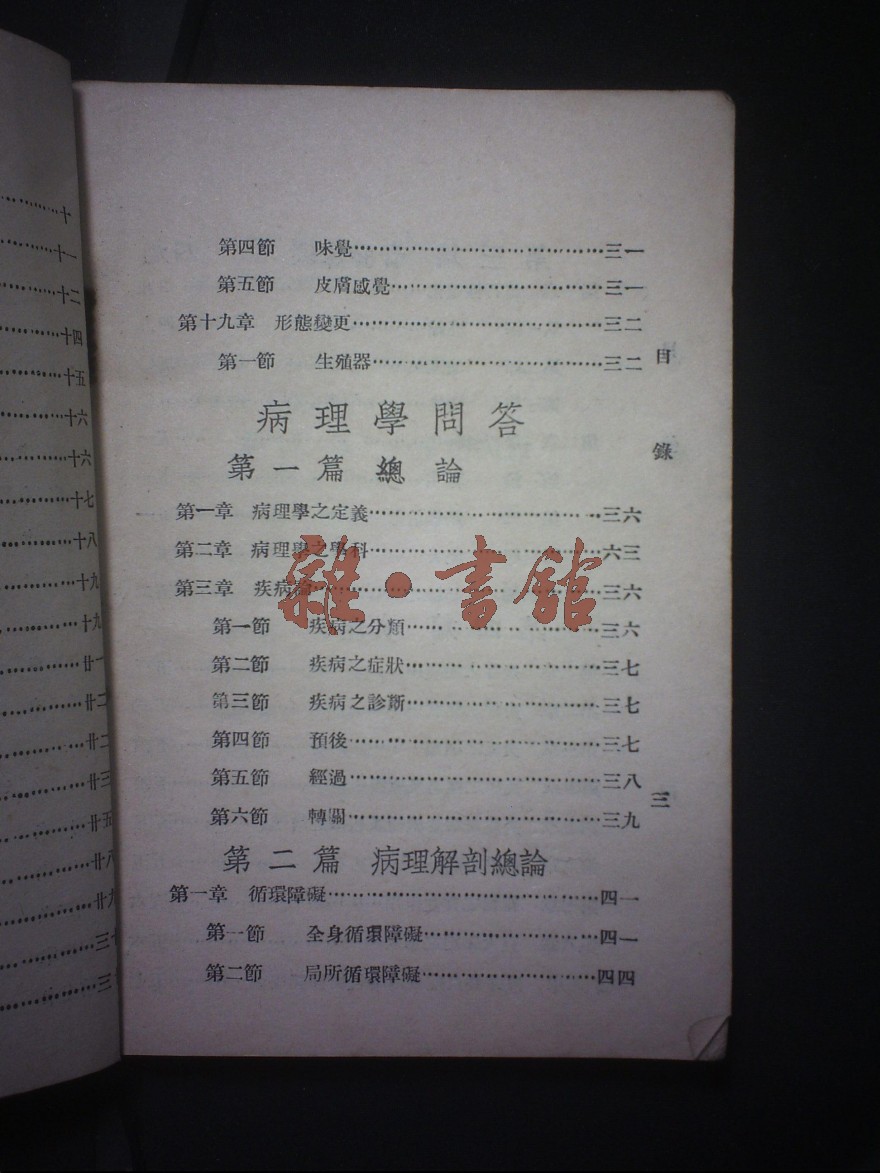 十
十一
十二
十四
十五
十六
十六
十七
十八
十九
十九
廿一
廿二
廿二
廿三
廿五
廿八
廿九
三十
第四節 味覺……三一
第五節 皮膚感覺……三一
第十九章 形態變更……三二
第一節 生殖器……三二
病理學問答
第一篇 總論
第一章 病理學之定義……三六
第二章 病理學之學科……六三
第三章 疾病論……三六
第一節 疾病之分類……三六
第二節 疾病之症狀……三七
第三節 疾病之診斷……三七
第四節 預後……三七
第五節 經過……三八
第六節 轉歸……三九
第二篇 病理解剖總論
第一章 循環障礙……四一
第一節 全身循環障礙……四一
第二節 局所循環障礙……四四
目錄
三
雜·書館